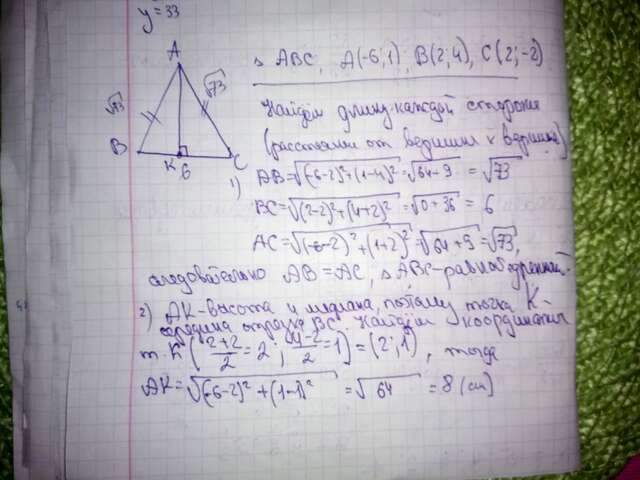 y = 33
A
√73
√73
B
K
6
C
△ ABC, A(-6; 1), B(2; 4), C(2; -2)
Найдём длину каждой стороны
(расстояние от вершины к вершине)
1) AB = √(-6-2)² + (1-4)² = √64+9 = √73
BC = √(2-2)² + (4+2)² = √0+36 = 6
AC = √(-6-2)² + (1+2)² = √64+9 = √73,
следовательно AB = AC, △ ABC - равнобедренный.
2) AK - высота и медиана, потому точка K -
середина отрезка BC. Найдём координаты
т. K (2+2/2 = 2; 4-2/2 = 1) = (2; 1), тогда
AK = √(-6-2)² + (1-1)² = √64 = 8 (см)